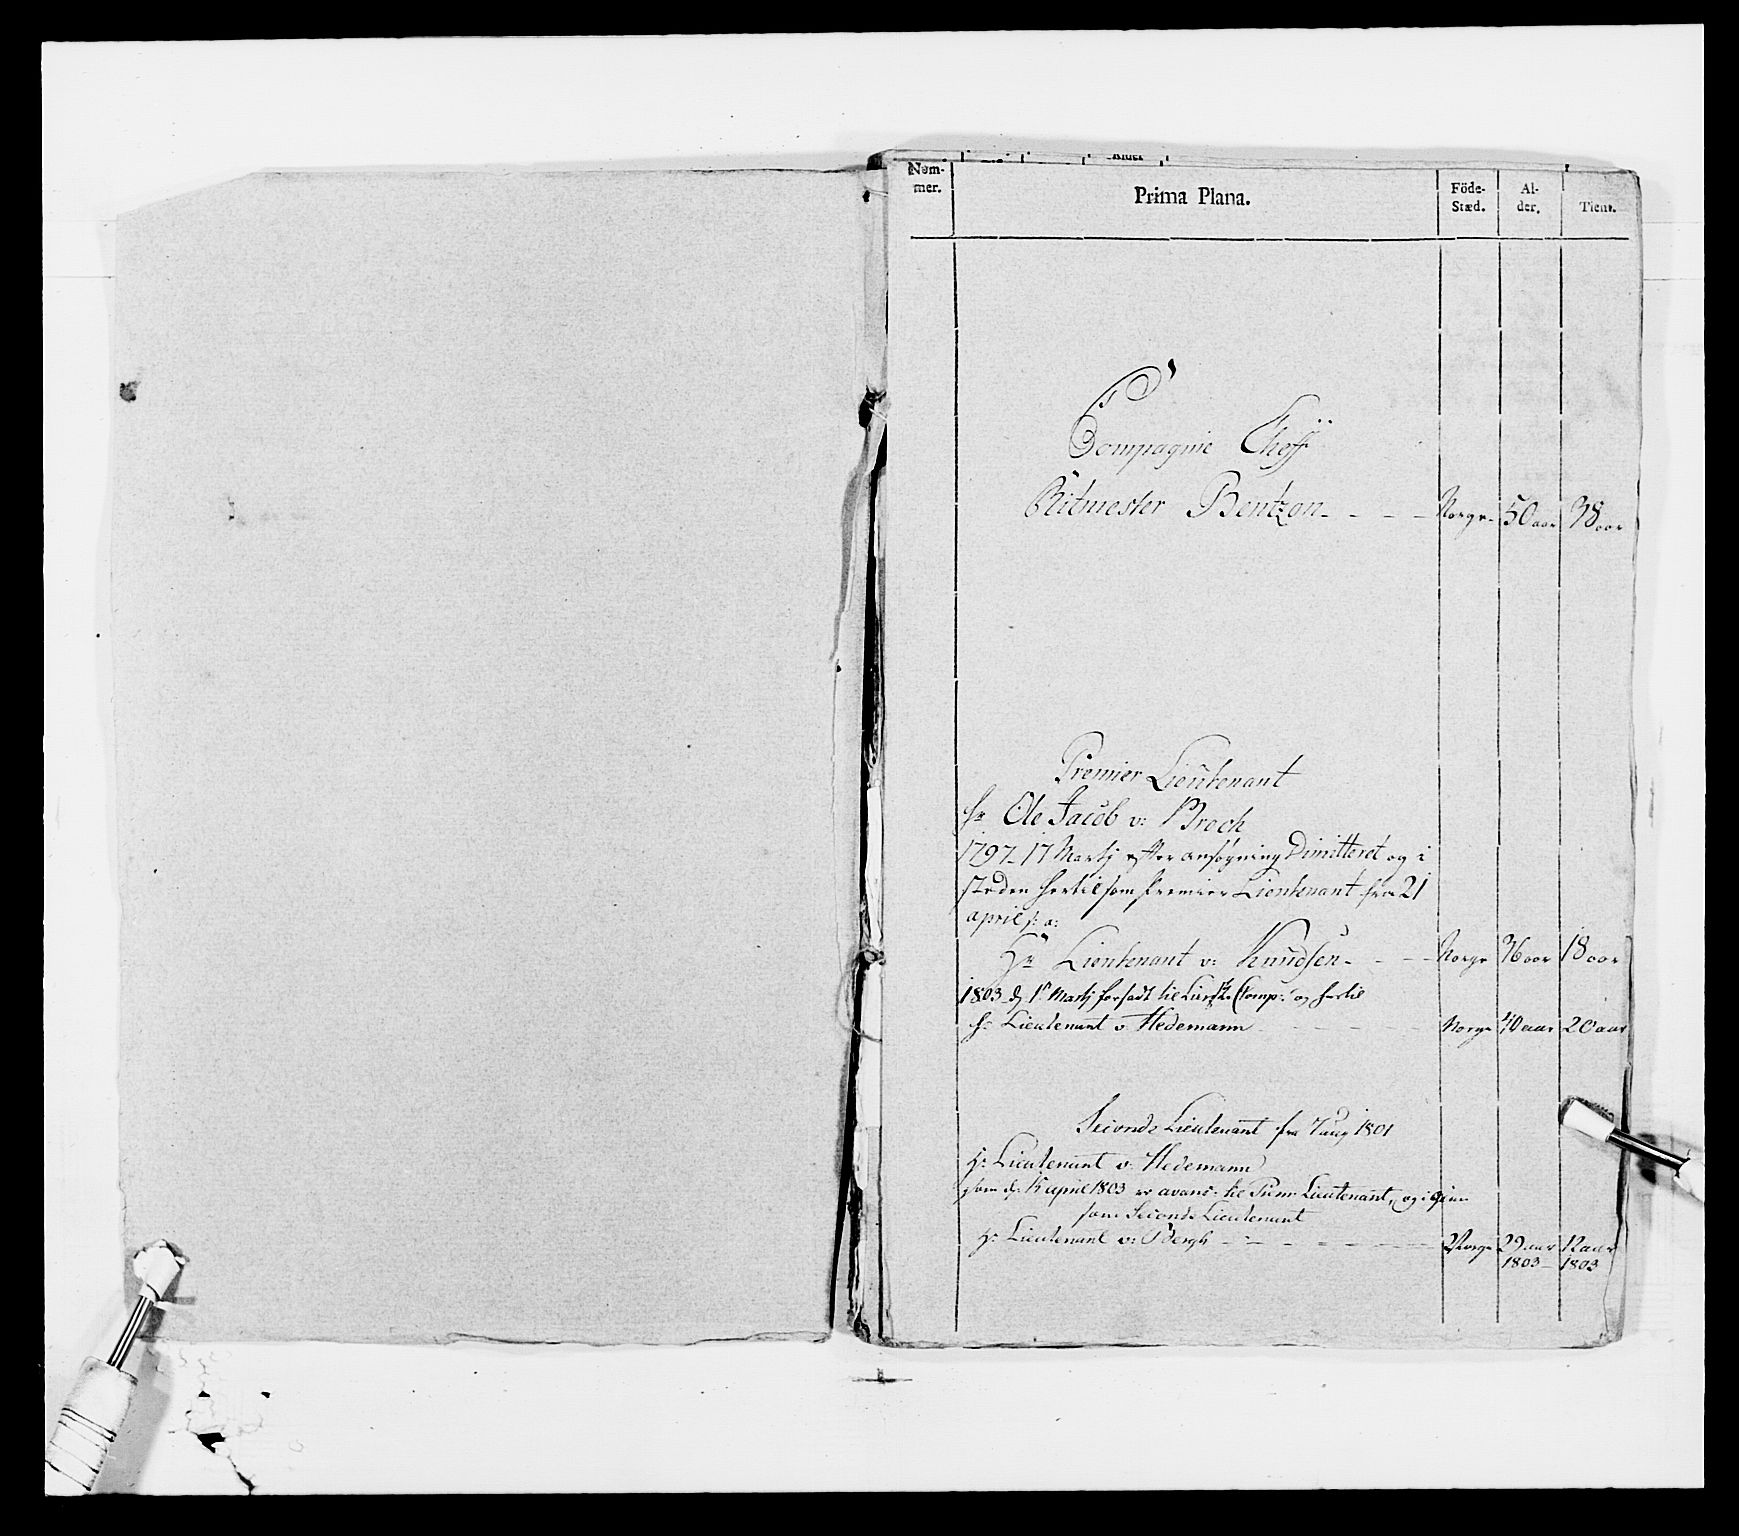 Nom-
mer.
Prima Plana.
Föde-
Stæd.
Al-
der.
Tient.
Compagnie Cheff
Ritmester Bentzon - - - - Norge - 50 aar 38 aar
Premier Lieutenant
Hr Ole Jacob v: Broch
1797 - 17 Martj efter ansøgning Dimitteret og i
steden hertil som Premier Lieutenant fra 21
april s: a:
Hr Lieutenant v: Knudsen - - - Norge 36 aar 18 aar
1803 d 1st Martj forsadt til Comp: og hertil
Hr Lieutenant v Hedemann - - - Norge 40 aar 20 aar
Seconde Lieutenant fra 7 aug 1801
Hr Lieutenant v: Hedemann
som d: 15 april 1803 er avanc: til Prem: Lieutenant, og igien
som Seconde Lieutenant
Hr Lieutenant v: Bergh - - - Norge 29 aar 12 aar
1803 - 1803